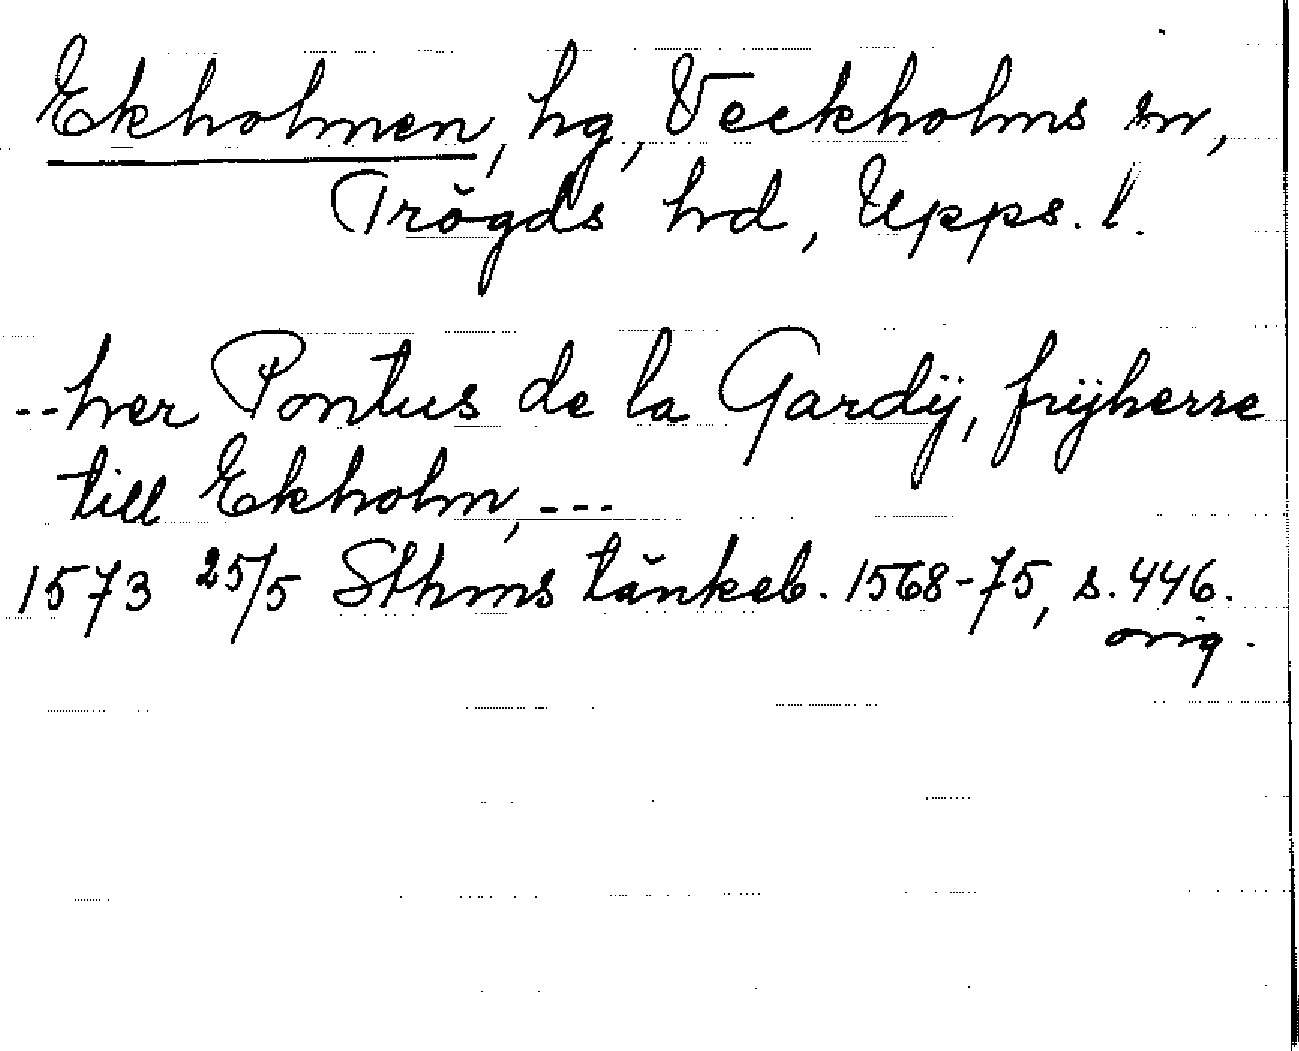 Ekholmen, hg, Veckholms sn,
Trögds hd, Upps. l.
--her Pontus de la Gardÿ, frÿherre
till Ekholm, ---
1573 25/5 Sthms tänkeb. 1568-75, s. 446.
orig.